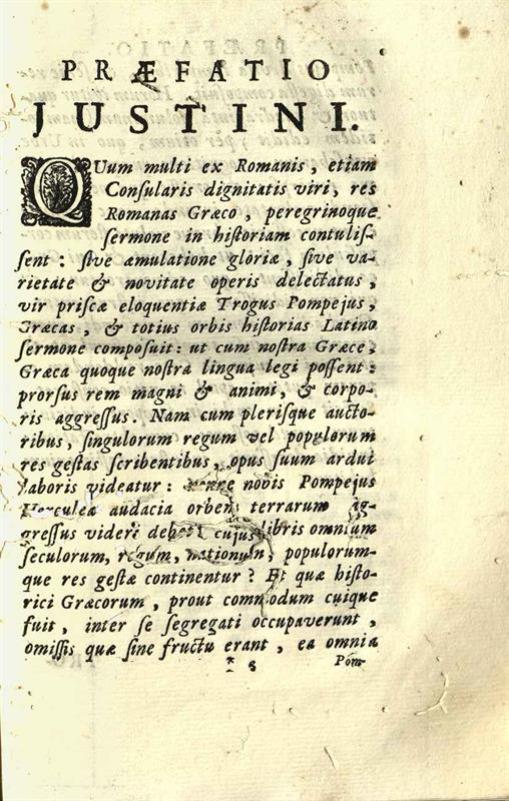 PRÆFATIO
JUSTINI.
QUum multi ex Romanis, etiam
Conſularis dignitatis viri, res
Romanas Græco, peregrinoque
ſermone in hiſtoriam contuliſ-
ſent: ſive æmulatione gloriæ, ſive va-
rietate & novitate operis delectatus,
vir priſcæ eloquentiæ Trogus Pompejus,
Græcas, & totius orbis hiſtorias Latino
ſermone compoſuit: ut cum noſtra Græce,
Græca quoque noſtra lingua legi poſſent:
prorſus rem magni & animi, & corpo-
ris aggreſſus. Nam cum pleriſque aucto-
ribus, ſingulorum regum vel populorum
res geſtas ſcribentibus, opus ſuum ardui
laboris videatur: nonne nobis Pompejus
Herculea audacia orbem terrarum ag-
greſſus videri debet, cujus libris omnium
ſeculorum, regum, nationum, populorum-
que res geſtæ continentur? Et quæ hiſto-
rici Græcorum, prout commodum cuique
fuit, inter ſe ſegregati occupaverunt,
omiſſis quæ ſine fructu erant, ea omnia
* 5 Pom-